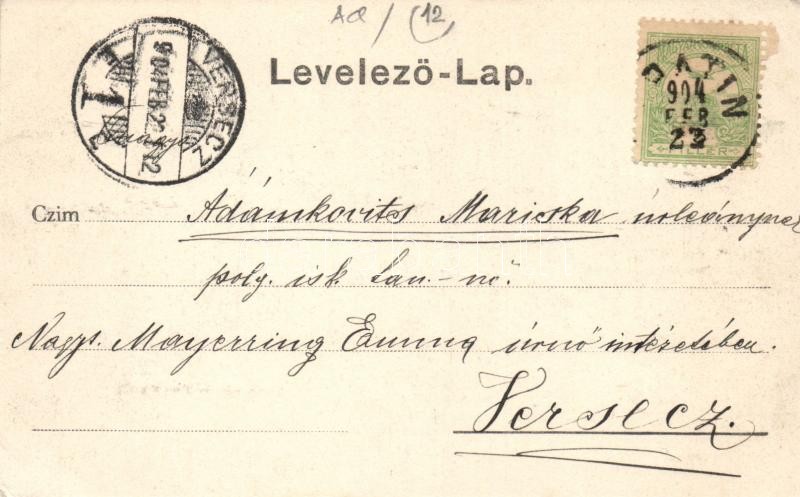 AQ / (12
VERSECZ
904 FEB 2
Levelező-Lap.
DATIN
904
FEB
23
FILLER
Czim Adámkovits Mariska úrleánynak
polg. isk. tan.-nő.
Nagys. Mayerring Emma úrnő intézetében.
Versecz.